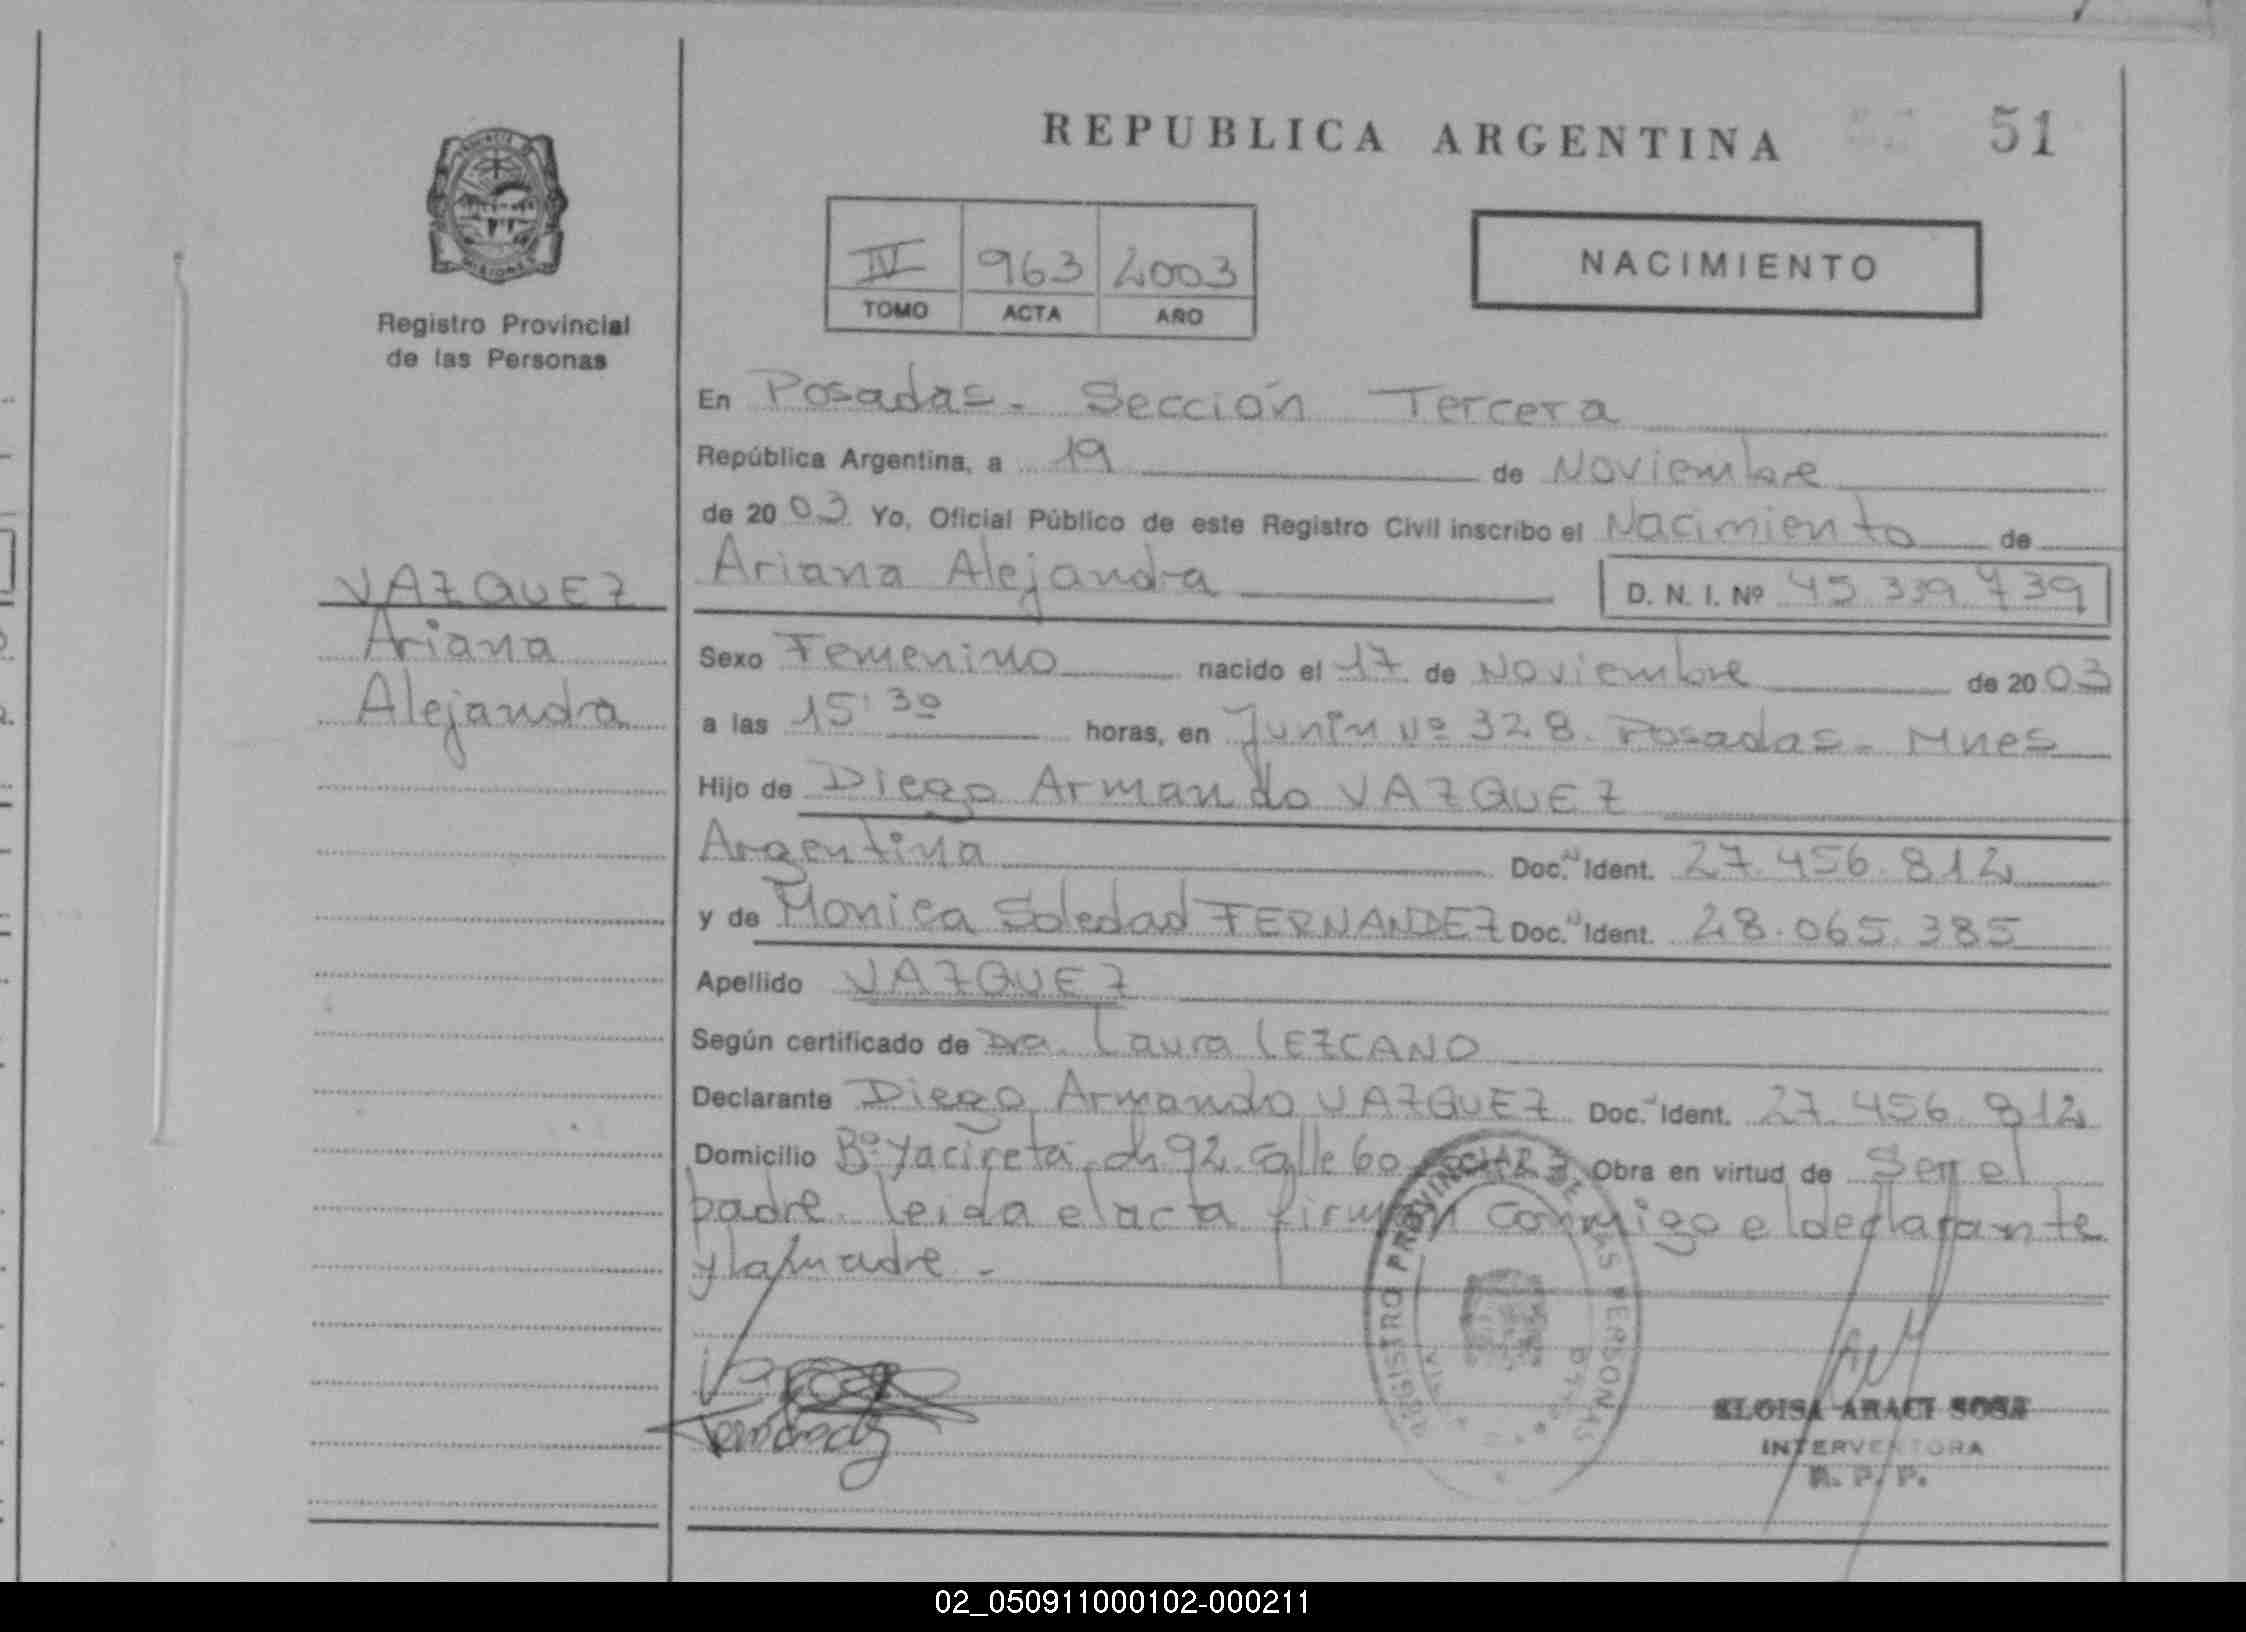 REPUBLICA ARGENTINA 51
Registro Provincial
de las Personas
IV 963 2003
TOMO ACTA AÑO
NACIMIENTO
En Posadas - Sección Tercera
República Argentina, a 19 de Noviembre
de 2003 Yo, Oficial Público de este Registro Civil inscribo el Nacimiento de
VAZQUEZ
Ariana
Alejandra
Ariana Alejandra D. N. I. Nº 45.339.739
Sexo Femenino nacido el 17 de Noviembre de 2003
a las 15:30 horas, en Junín Nº 328. Posadas - Mnes
Hijo de Diego Armando VAZQUEZ
Argentina Doc. N Ident. 27.456.812
y de Monica Soledad FERNANDEZ Doc. N Ident. 28.065.385
Apellido VAZQUEZ
Según certificado de Dra. Laura LEZCANO
Declarante Diego Armando VAZQUEZ Doc. N Ident. 27.456.812
Domicilio Bº Yacireta ch 92 calle 60 Obra en virtud de Ser el
padre. leida el acta firman conmigo el declarante
y la madre. -
REGISTRO PROVINCIAL DE LAS PERSONAS
Fernandez
ELOISA ARACI SOSA
INTERVENTORA
R. P. P.
02_050911000102-000211